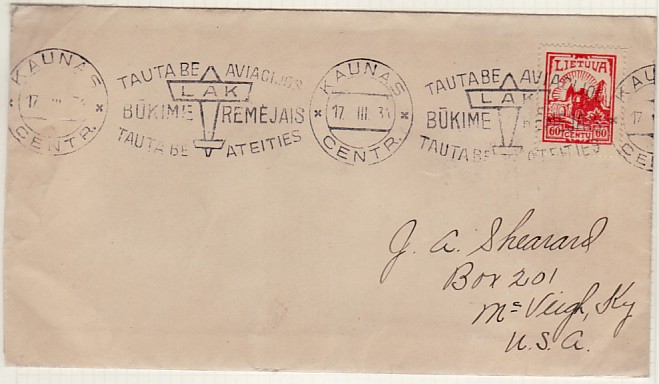 KAUNAS
17 III 34
CENTR.
TAUTA BE AVIACIJOS
LAK
BŪKIME RĖMĖJAIS
TAUTA BE ATEITIES
KAUNAS
17 III 34
CENTR.
TAUTA BE AVIACIJOS
LAK
BŪKIME
TAUTA BE ATEITIES
LIETUVA
60 CENTŲ 60
KAU
17
CE
J. A. Shearard
Box 201
McVeigh, Ky
U.S.A.